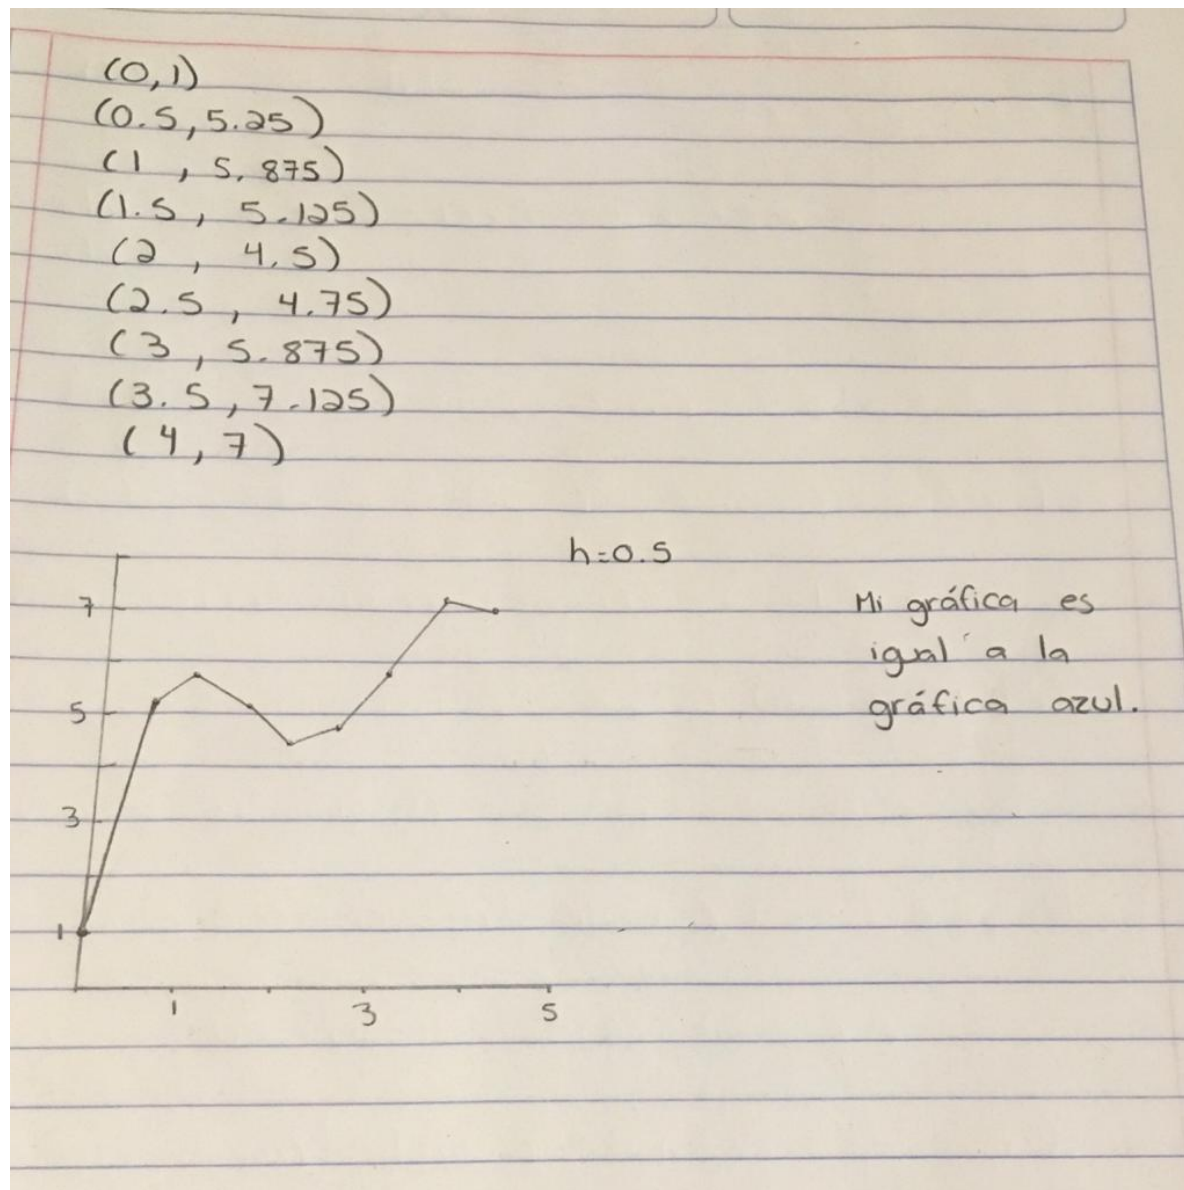 (0,1)
(0.5,5.25)
(1 , 5.875)
(1.5, 5.125)
(2 , 4.5)
(2.5 , 4.75)
(3 , 5.875)
(3.5, 7.125)
(4, 7)
h=0.5
7
Mi gráfica es
igual a la
5
gráfica azul.
3
1
1 3 5